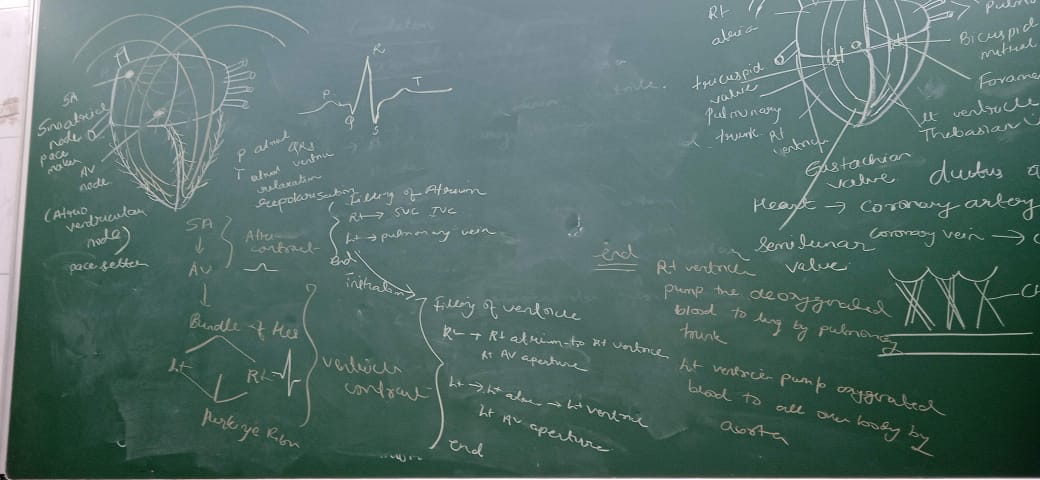 SA
Sinoatrial
node
pace
maker
AV
node
(Atrio
ventricular
node)
pace setter
P
Q
R
S
T
P atrial QRS
T atrium ventricle
relaxation
SA
↓
AV
↓
Bundle of His
Lt
Rt
Atrium
contract
ventricle
contract
Filling of Atrium
Rt → SVC IVC
Lt → pulmonary vein
End
initiation
Filling of ventricle
Rt → Rt atrium to Rt ventricle
Rt AV aperture
Lt → Lt atrium → Lt ventricle
Lt AV aperture
end
end
Rt ventricle
pump the deoxygenated
blood to lung by pulmonary
trunk
Lt ventricle pump oxygenated
blood to all over body by
aorta
Rt
tricuspid
valve
Pulmonary
trunk Rt
ventricle
Bicuspid
mitral
Lt ventricle
Thebasian
Eustachian
valve
ductus
Heart → Coronary artery
Coronary vein →
Semilunar
valve